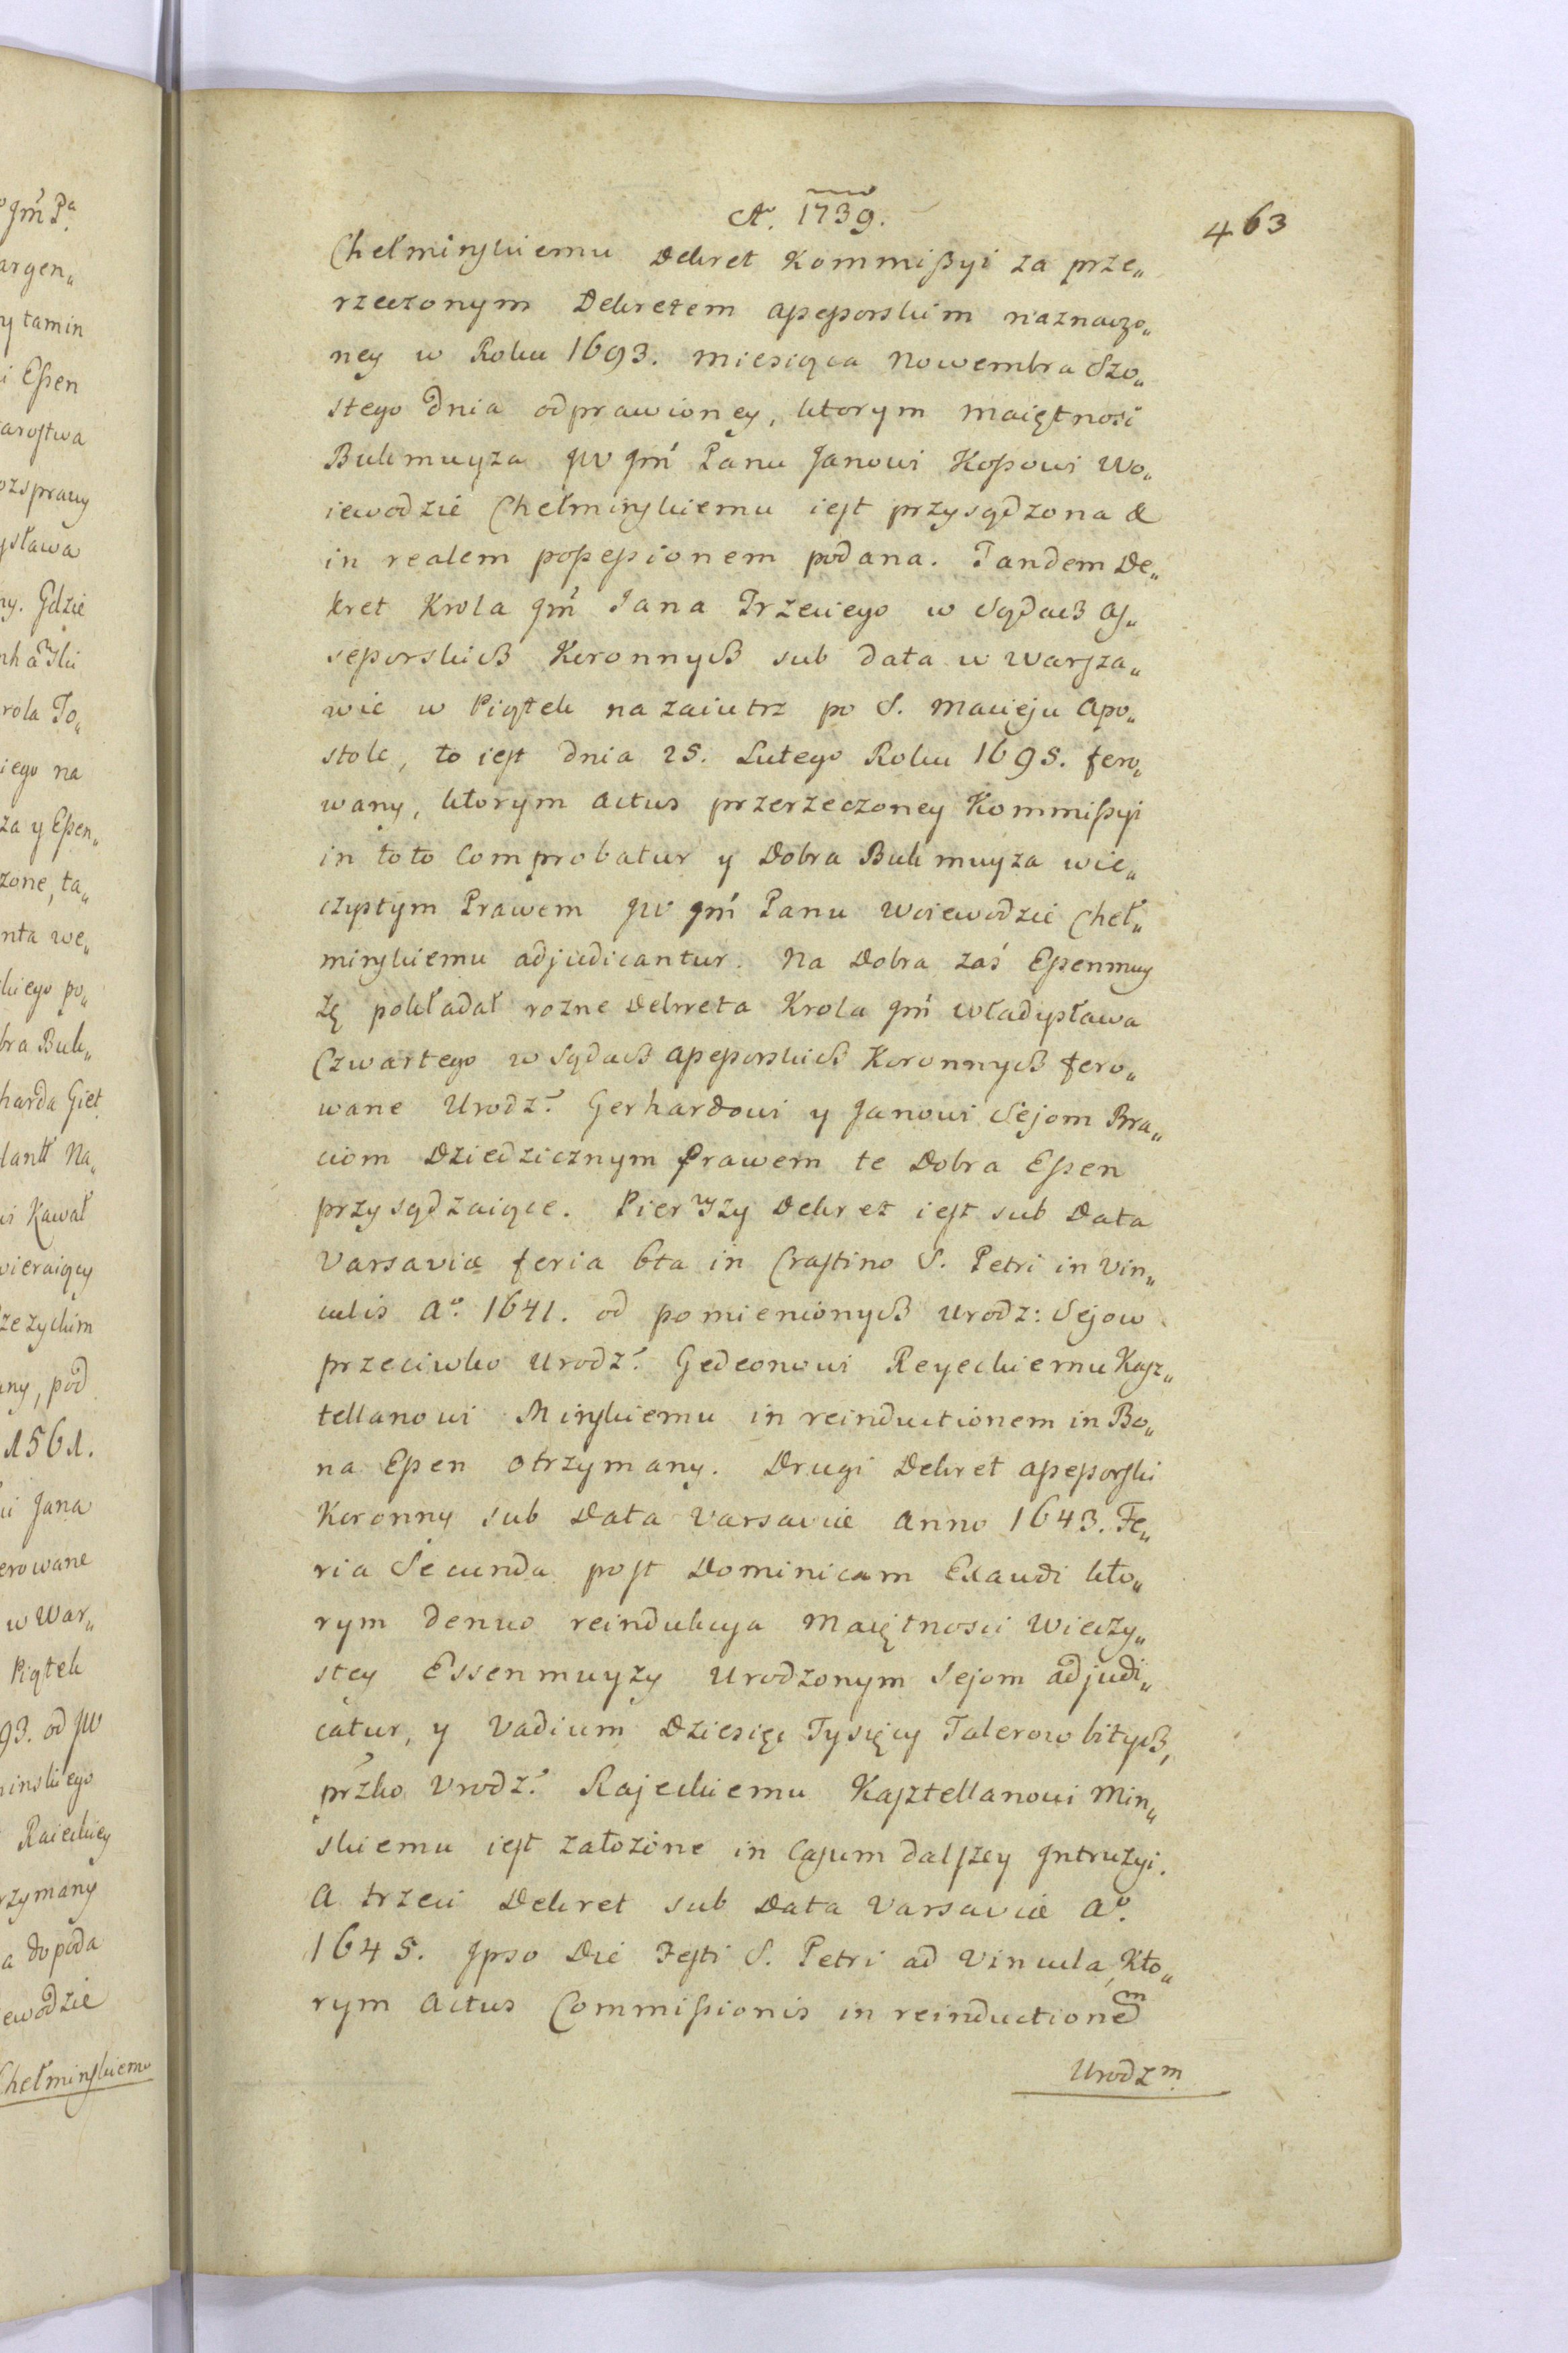 Ao. 1739.
463
Chełminskiemu Dekret Kommissyi za prze„
rzeczonym Dekretem assessorskim naznaczo„
ney w Roku 1693. miesiąca Nowembra Szo„
stego dnia odprawioney, ktorym maiętnosć
Bukmuyza JW Jmć Panu Janowi Kossowi Wo„
iewodzie Chełminskiemu iest przysądzona &
in realem possessionem podana. Tandem De„
kret Krola Jmć Jana Trzeciego w Sądach As„
sessorskich Koronnych sub data w Warsza„
wie w Piątek nazaiutrz po S. Macieju Apo„
stole, to iest dnia 25. Lutego Roku 1695. fero„
wany, ktorym actus przerzeczoney Kommissyi
in toto Comprobatur y Dobra Bukmuyza wie„
czystym Prawem JW Jmć Panu Woiewodzie Cheł„
minskiemu adjudicantur. Na Dobra zaś Essenmuy
zę pokładał rozne Dekreta Krola Jmć Władysława
Czwartego w Sądach assessorskich Koronnych fero„
wane Urodz: Gerhardowi y Janowi Sejom Bra„
ciom Dziedzicznym Prawem te Dobra Essen
przysądzaiące. Pierwszy Dekret iest sub Data
Varsaviæ feria 6ta in Crastino S. Petri in Vin„
culis Ao. 1641. od pomienionych Urodz: Sejow
przeciwko Urodz: Gedeonowi Reyeckiemu Kasz„
tellanowi Minskiemu in reinductionem in Bo„
na Essen otrzymany. Drugi Dekret assessorski
Koronny sub Data Varsaviæ Anno 1643. Fe„
ria Secunda post Dominicam Exaudi kto„
rym denuo reindukcya Maiętnosci Wieczy„
stey Essenmuyzy Urodzonym Sejom adjudi„
catur, y Vadium Dziesięć Tysięcy Talerow bitych,
przko Urodz: Rajeckiemu Kasztellanowi Min„
skiemu iest założone in Casum dalszey Intruzyi.
A trzeci Dekret sub Data Varsaviæ Ao.
1645. Ipso Die Festi S. Petri ad Vincula, Kto„
rym Actus Commissionis in reinductionem
Urodzm